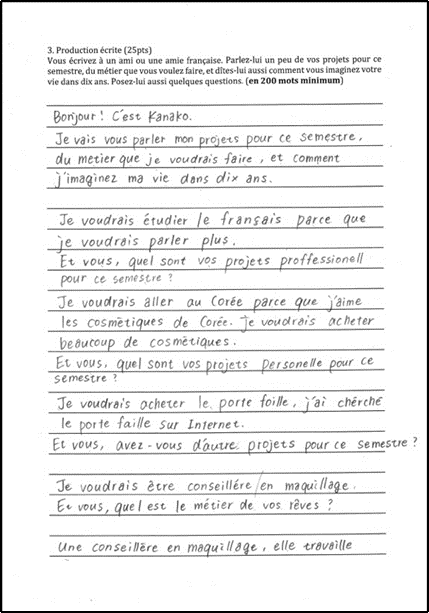 3. Production écrite (25pts)
Vous écrivez à un ami ou une amie française. Parlez-lui un peu de vos projets pour ce
semestre, du métier que vous voulez faire, et dîtes-lui aussi comment vous imaginez votre
vie dans dix ans. Posez-lui aussi quelques questions. (en 200 mots minimum)
Bonjour! C'est Kanako.
Je vais vous parler mon projets pour ce semestre,
du metier que je voudrais faire, et comment
j'imaginez ma vie dans dix ans.
Je voudrais étudier le fransais parce que
je voudrais parler plus.
Et vous, quel sont vos projets proffessionell
pour ce semestre?
Je voudrais aller au Corée parce que j'aime
les cosmètiques de Corée. je voudrais acheter
beaucoup de cosmètiques.
Et vous, quel sont vos projets personelle pour ce
semestre?
Je voudrais acheter le porte foille, j'ai chérché
le porte faille sur Internet.
Et vous, avez-vous d'autre projets pour ce semestre?
Je voudrais être conseillére/en maquillage.
Et vous, quel est le métier de vos rêves?
Une conseillère en maquillage, elle travaille